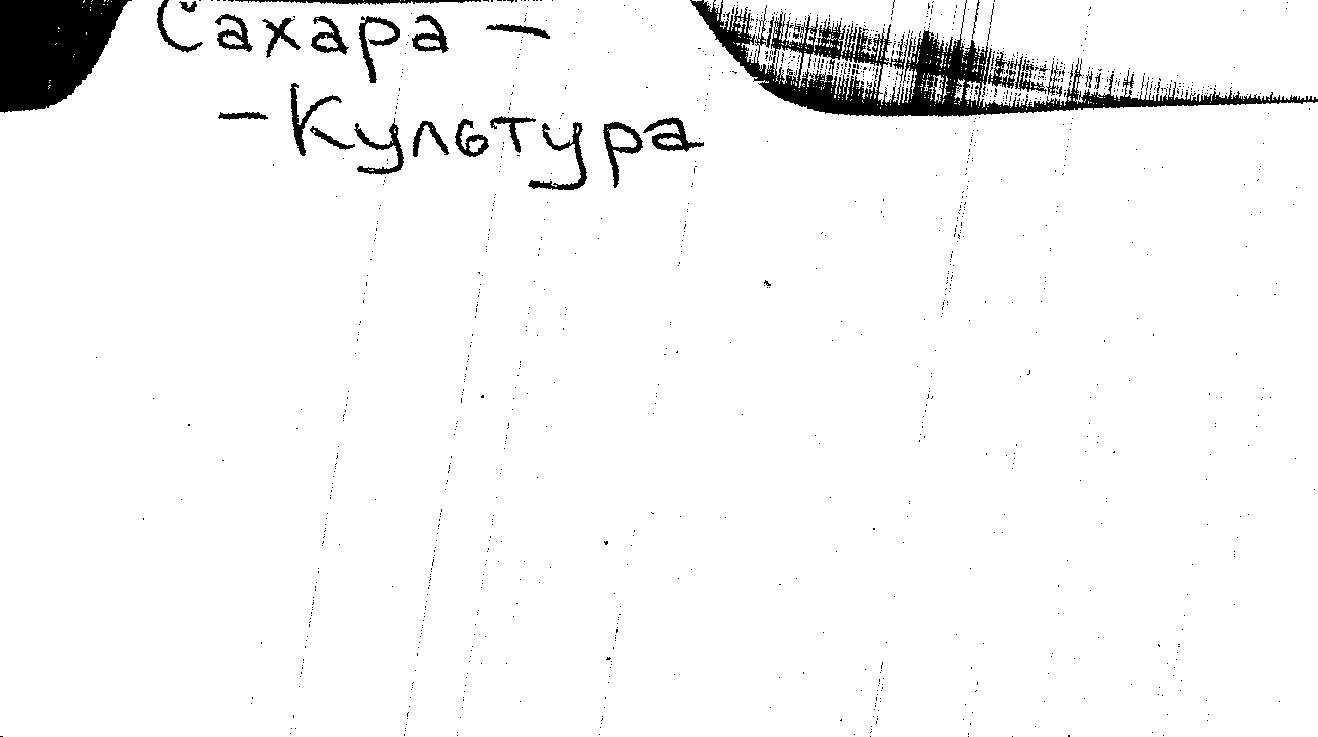 Сахара —
— Культура